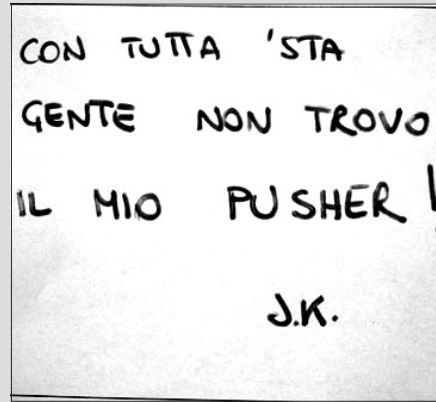 CON TUTTA 'STA
GENTE NON TROVO
IL MIO PUSHER !
J.K.